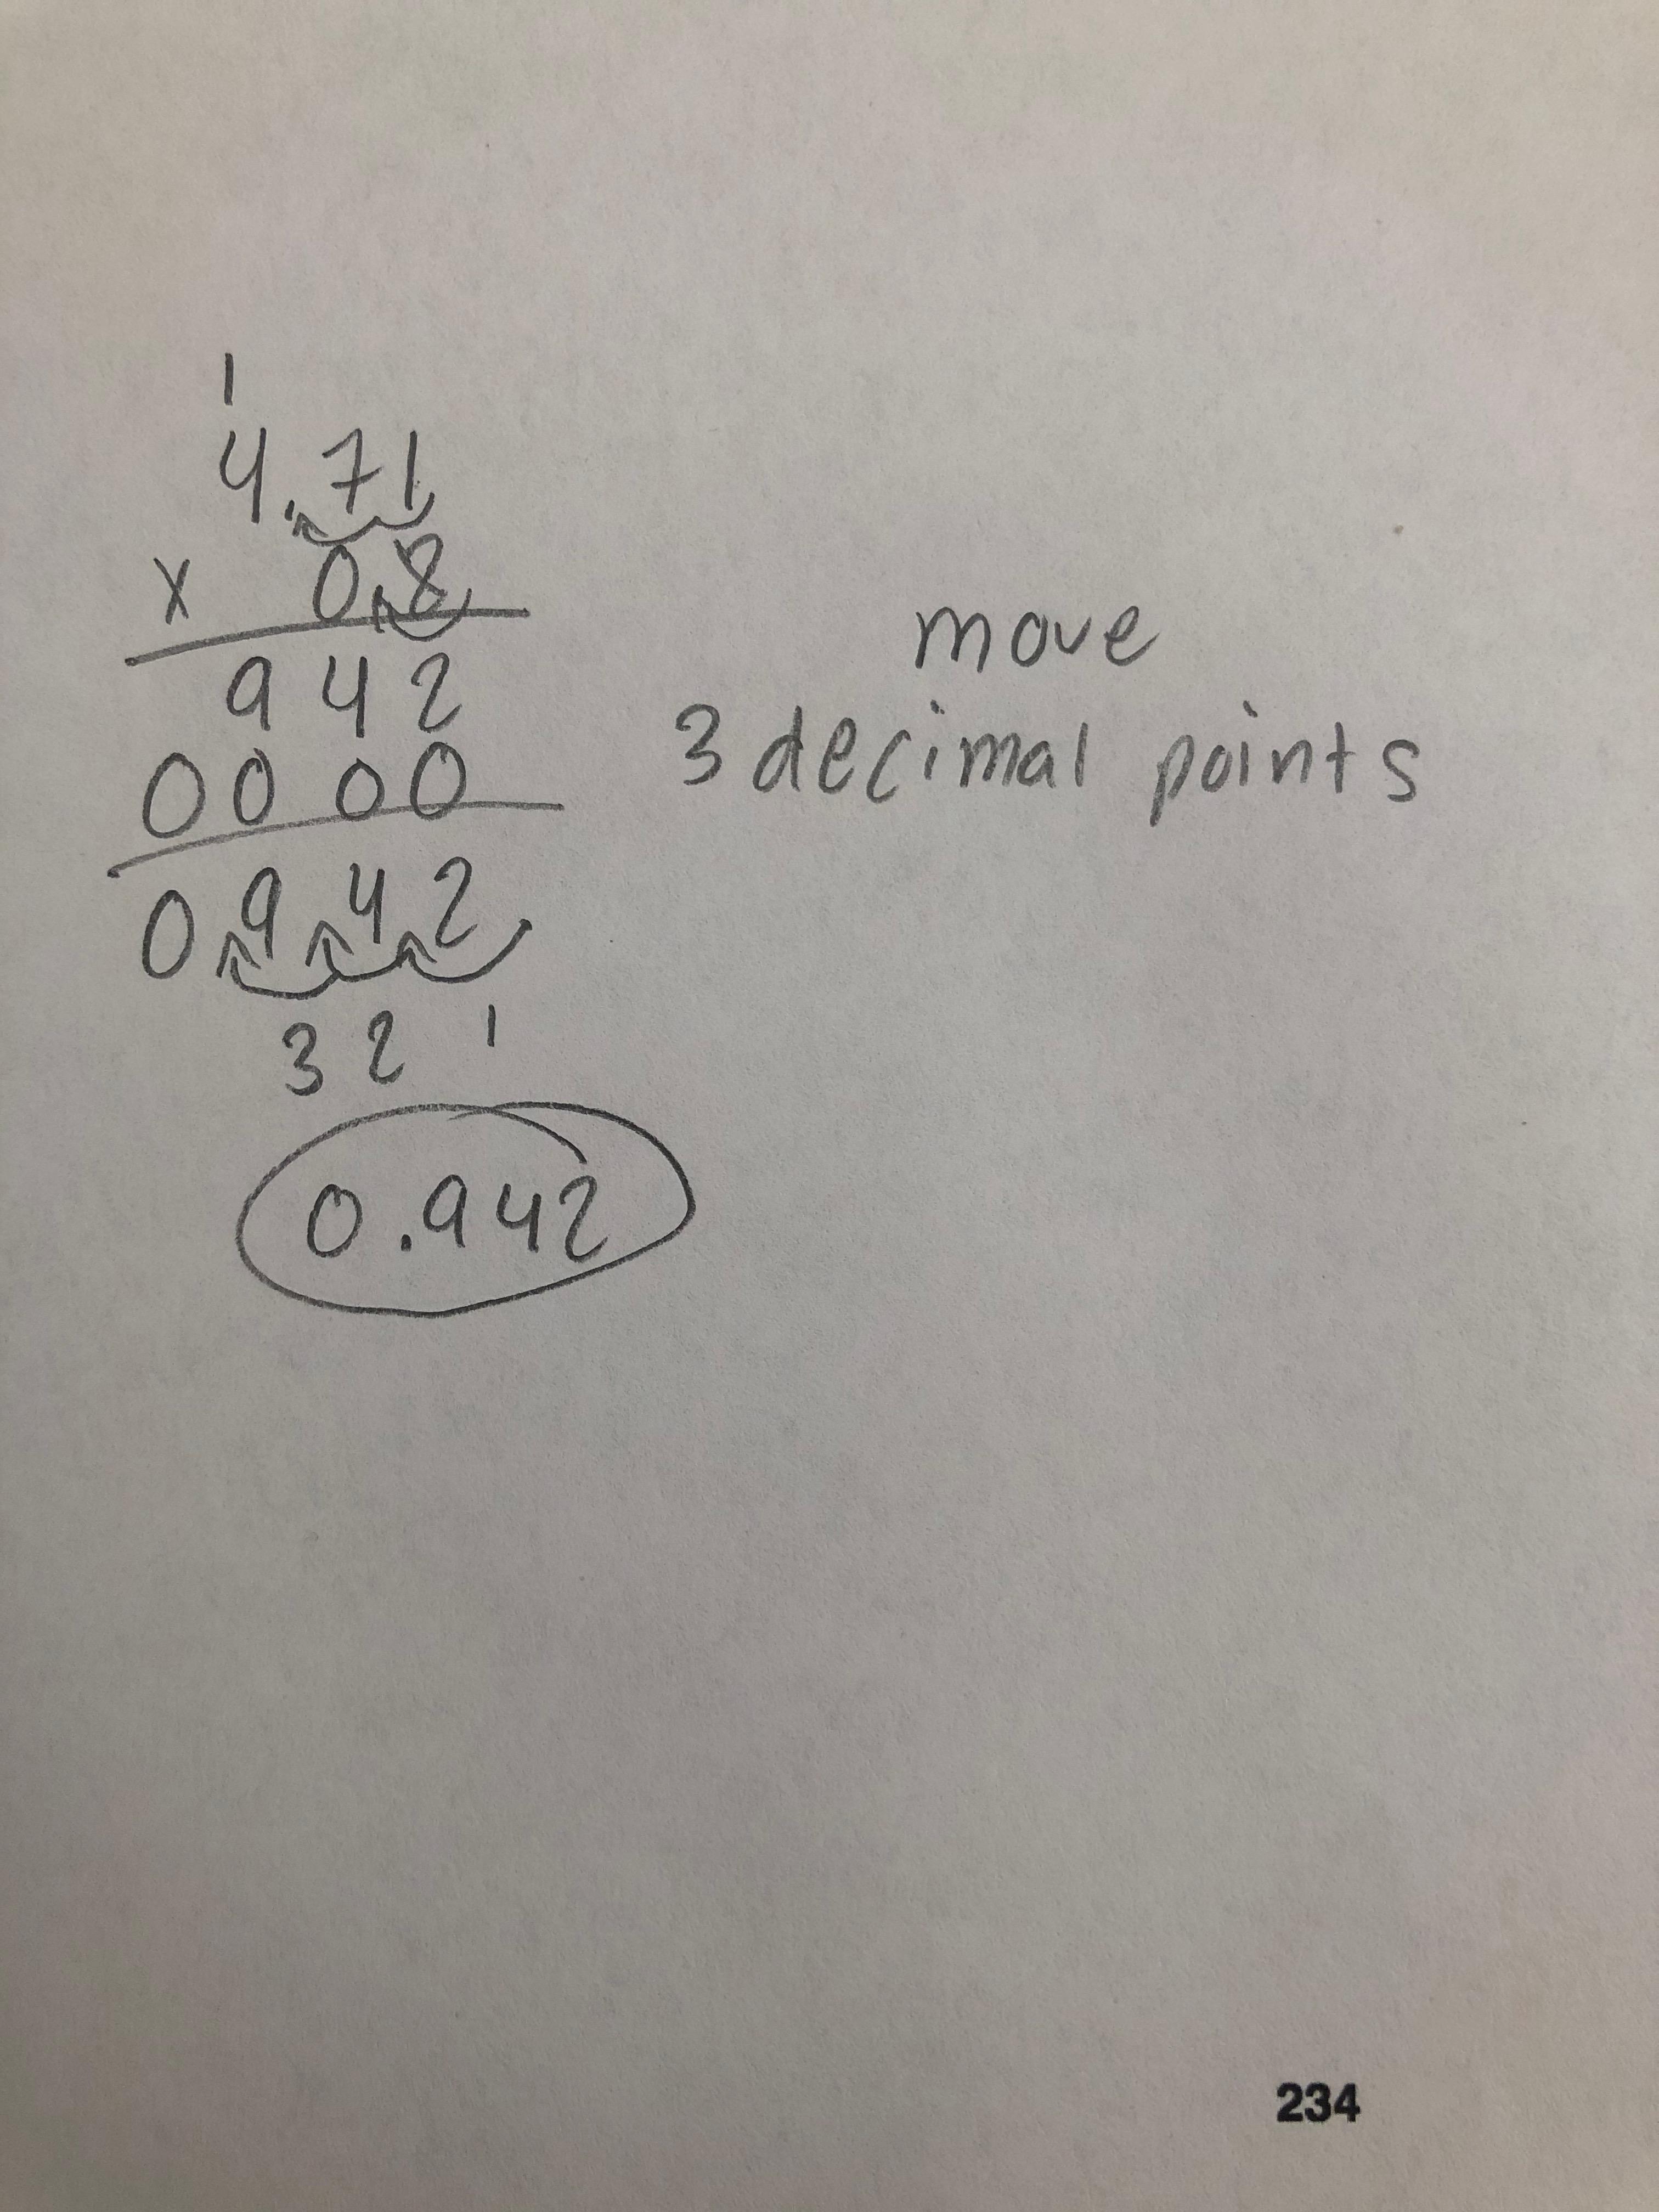 1
4.71
x 0.8
942
0000
0942
3 2 1
0.942
move
3 decimal points
234